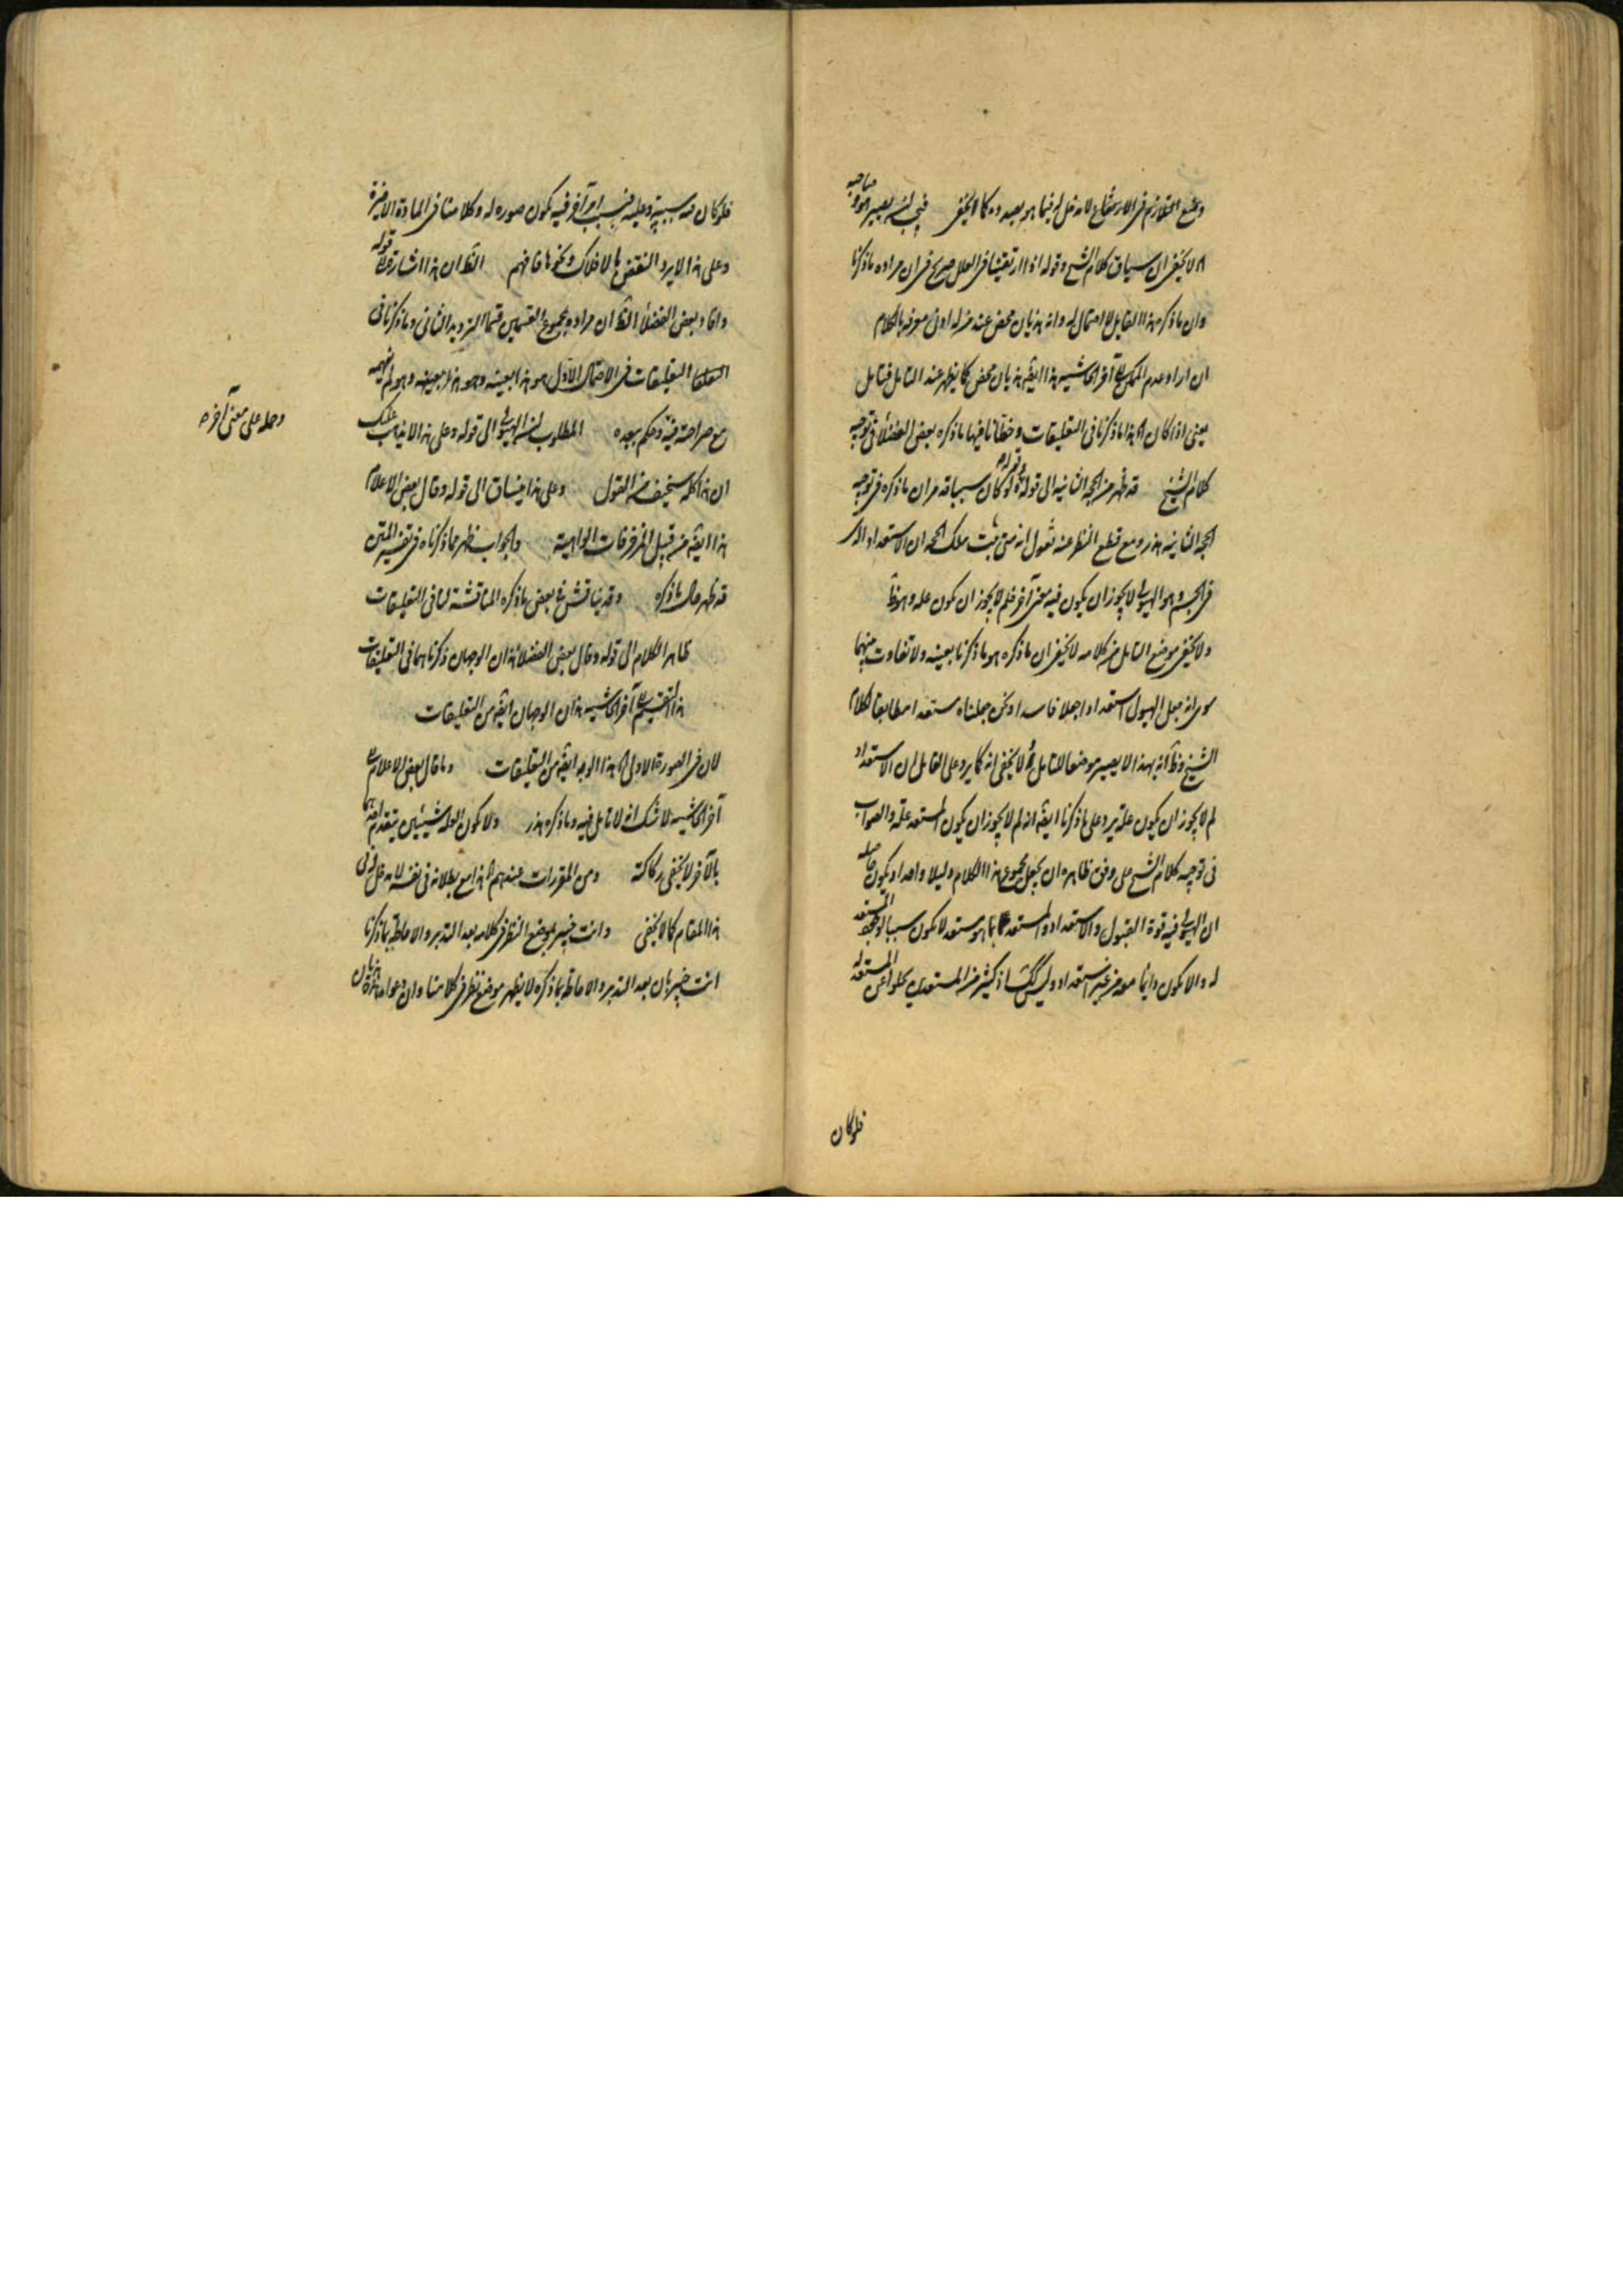 ويمنع التلازم في الارتفاع لا دخل له فيما هو بصدده كما لا يخفى فيجب ان يصير هو و صاحبه
لا يخفى ان سياق كلام الشيخ وقوله اذا ارتقينا في العلل صريح في ان مراده ما ذكرنا
وان ما ذكره هذا القايل لا احتمال له وانه هذيان محض عند من له ادنى معرفة بالكلام
ان اراد عدم آخر الحاشيه هذا ايضا هذيان محض كما يظهر عند التامل فتامل
يعنى اذا كان هذا ما ذكرنا في التعليقات وخطانا فيها ما ذكره بعض الفضلاء في توجيه
كلام الشيخ قد ظهر من الحجة الثانيه الى قوله ولو كان سياقه مر ان ما ذكره في توجيه
الحجة الثانيه هذر ومع قطع النظر عنه نقول انه متى ثبت بتلك الحجة ان الاستعداد الذى
في الجسم هو الهيولى لا يجوز ان يكون فيه معنى آخر فلم لا يجوز ان يكون علة وهو ظ
ولا يخفى موضع التامل من كلامه لا يخفى ان ما ذكره هو ما ذكرنا بعينه ولا تفاوت بينهما
سوى انه جعل الهيولى استعدادا جعلا فاسدا ونحن جعلناه مستعدا مطابقا لكلام
الشيخ وظ انه بهذا لا يصير موضعا للتامل لا يخفى انه كما يرد على القايل ان الاستعداد
لم لا يجوز ان يكون علة يرد على ما ذكرنا ايضا انه لم لا يجوز ان يكون المستعد علة والصواب
في توجيه كلام الشيخ على وفق ظاهره ان يجعل مجموع هذا الكلام دليلا واحدا ويكون حاصله
ان الهيولى فيه قوة القبول والاستعداد والمستعد بما هو مستعد لا يكون سببا لوجود المستعد
له والا لكون دائما معه من غير استعداد وليس كك اذ كثير من المستعد يخلو عن المستعد له
فلو كان
فلو كان فيه سببية وعلية فبسبب امر آخر فيه يكون صورة له وكلامنا في المادة الاخيرة
وعلى هذا لا يرد النقض بالافلاك ونحوها فافهم الظ ان هذا اشارة قوله
وافاد بعض الفضلاء الظ ان مراده بمجموع القسمين قسما الترديد الثانى وما ذكرنا في
التعليقات في الاحتمال الاول هو هذا بعينه وهو هذا بعينه وهو لم يفهمه
وحمله على معنى آخر
مع صراحته فيه وحكم ببعده المطلوب ان الهيولى الى قوله وعلى هذا لا يذهب عليك
ان هذا كله سخيف من القول وعلى هذا ينساق الى قوله وقال بعض الاعلام
هذا ايضا من قبيل المزخرفات الواهية والجواب ظهر مما ذكرناه في تفسير المتن
قد ظهر حال ما ذكره وقد يناقش في بعض ما ذكره المناقشة لنا في التعليقات
ظاهر الكلام الى قوله وقال بعض الفضلا هذان الوجهان ذكرناهما في التعليقات
هذا التقسيم آخر الحاشيه هذان الوجهان ايضا من التعليقات
لان في الصورة الاولى هذا الوجه ايضا من التعليقات وما قال بعض الاعلام
آخر الحاشيه لا شك انه لا تامل فيه وما ذكره هذر ولا يكون العلة شيئين يتقدم احدهما
بالآخر لا يخفى ركاكته ومن المقررات عندهم هذا مع بطلانه في نفسه لا دخل له في
هذا المقام كما لا يخفى وانت خبير بموضع النظر في كلامه بعد التدبر والاحاطة بما ذكرنا
انت خبير بان بعد التدبر والاحاطة بما ذكره لا يظهر موضع نظر في كلامنا وان دعواه هذه هذيان